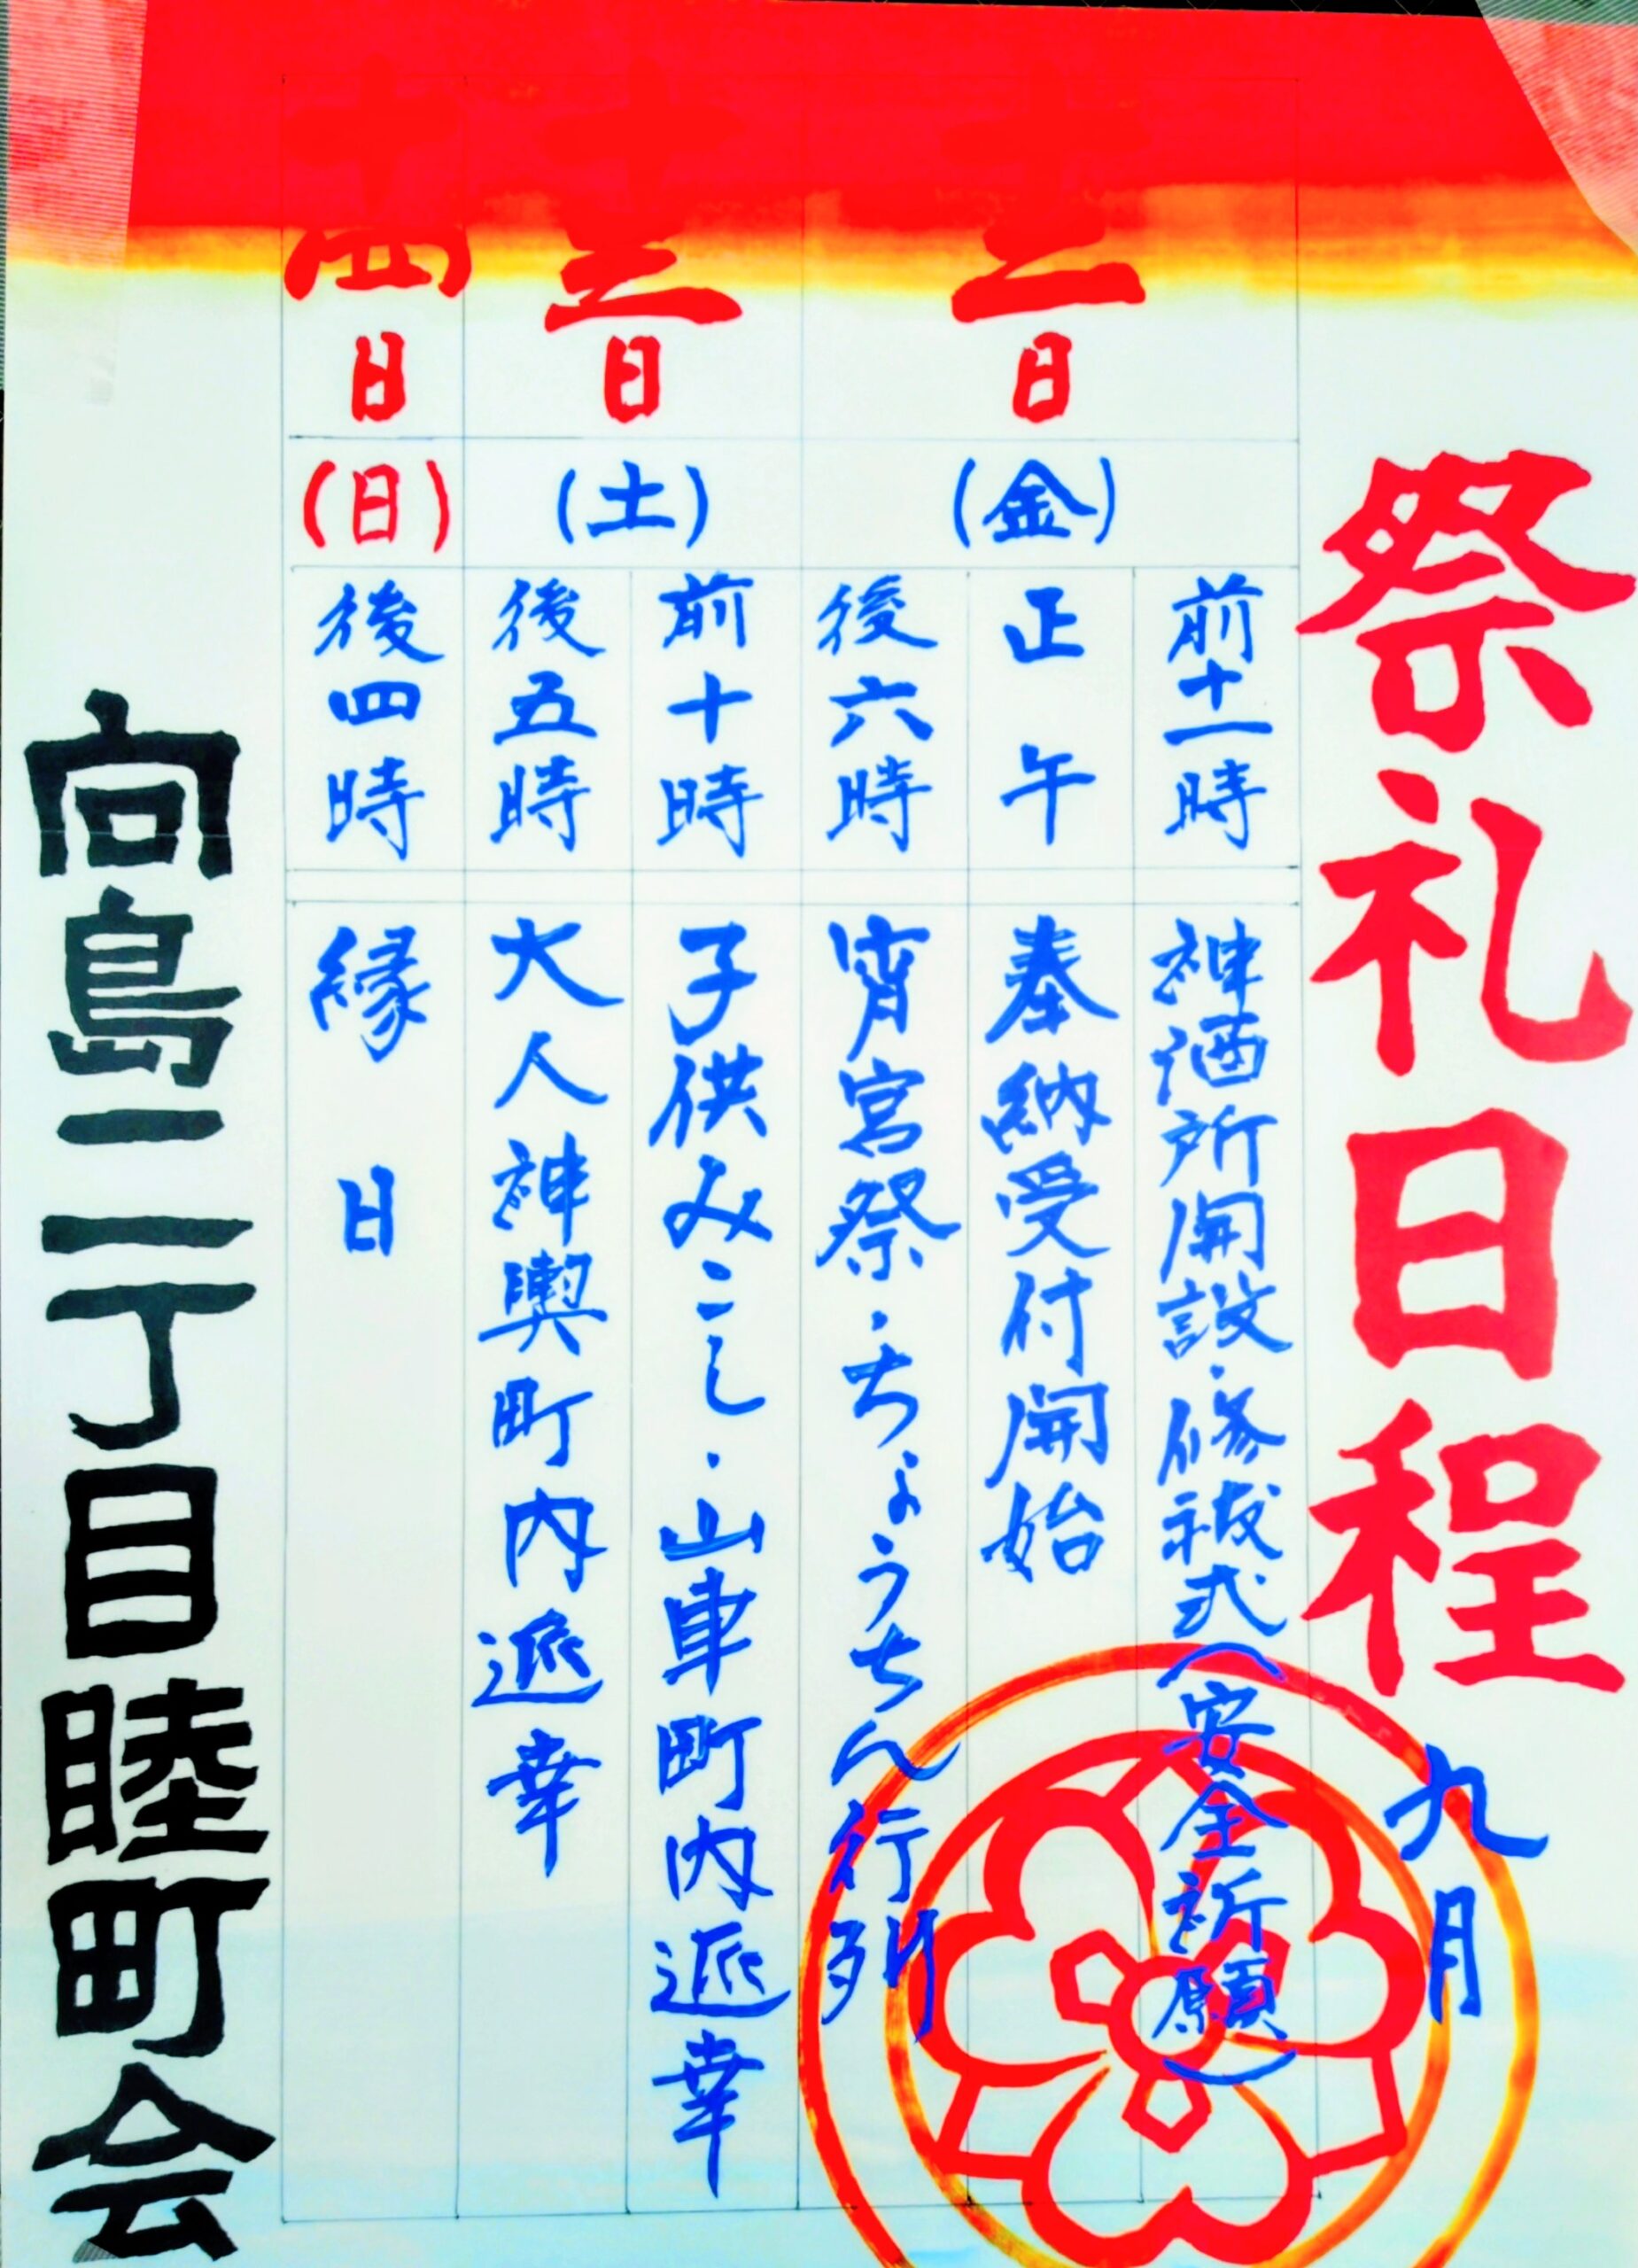 祭礼日程
九月
十二日
(金)
前十一時
神酒所開設・修祓式(安全祈願)
正午
奉納受付開始
後六時
宵宮祭・ちょうちん行列
十三日
(土)
前十時
子供みこし・山車町内巡幸
後五時
大人神輿町内巡幸
十四日
(日)
後四時
縁日
向島二丁目睦町会